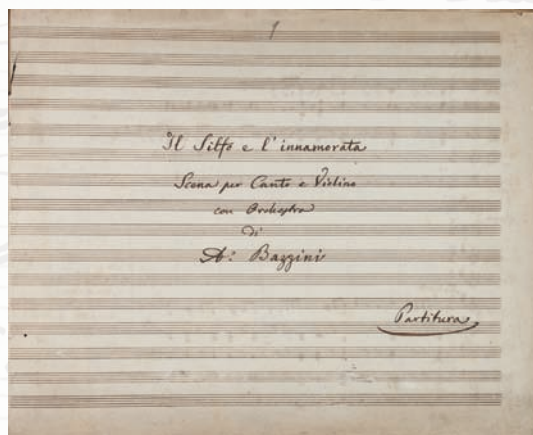 Il Silfo e l'innamorata
Scena per Canto e Violino
con Orchestra
di
A: Bazzini
Partitura